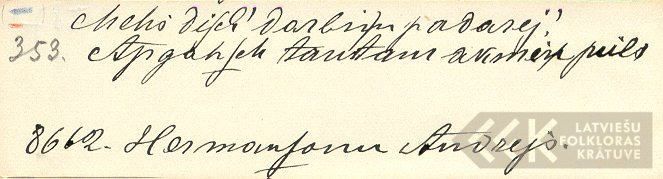 Mehs diſch' darbiņu padarej',
353. Apgahſch tautam akmiņ pils
8662. Hermanſonu Andrejs.
LATVIEŠU
FOLKLORAS
KRĀTUVE